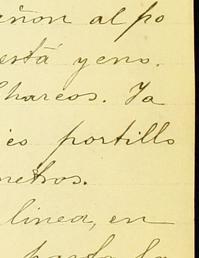 al po
está yeno.
Charcos. Ya
portillo
metros.
linea, en
la